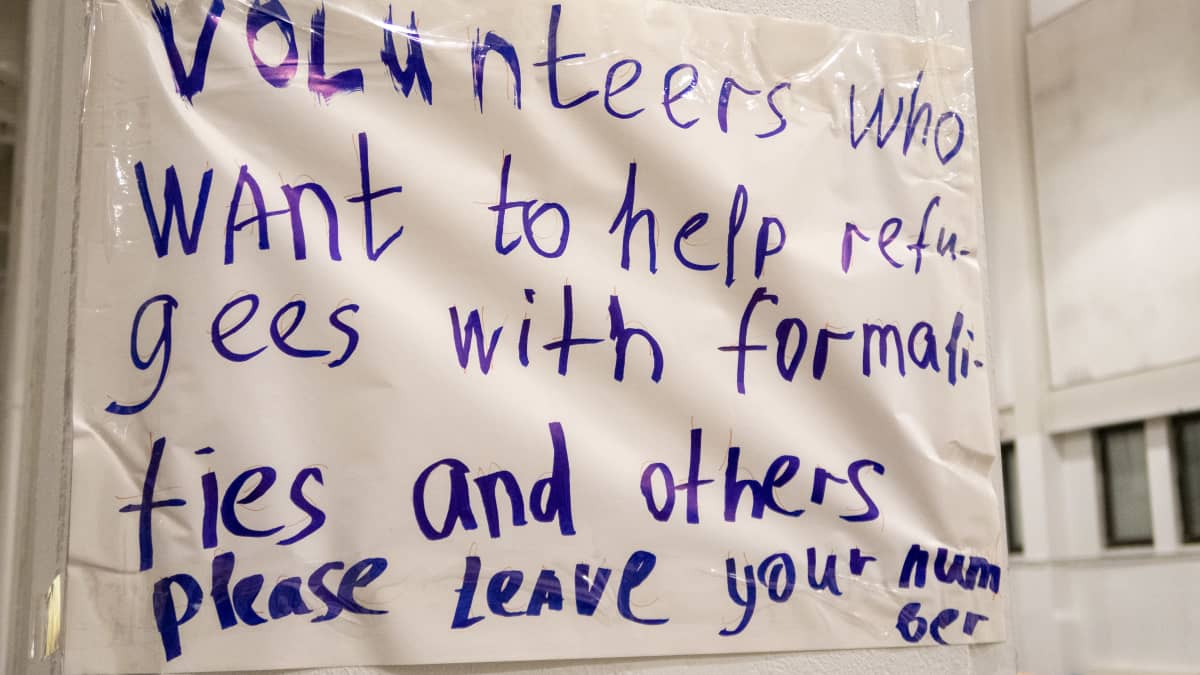 VOLunteers who
WAnt to help refu-
gees with formali-
ties and others
please LeAVe your num
ber